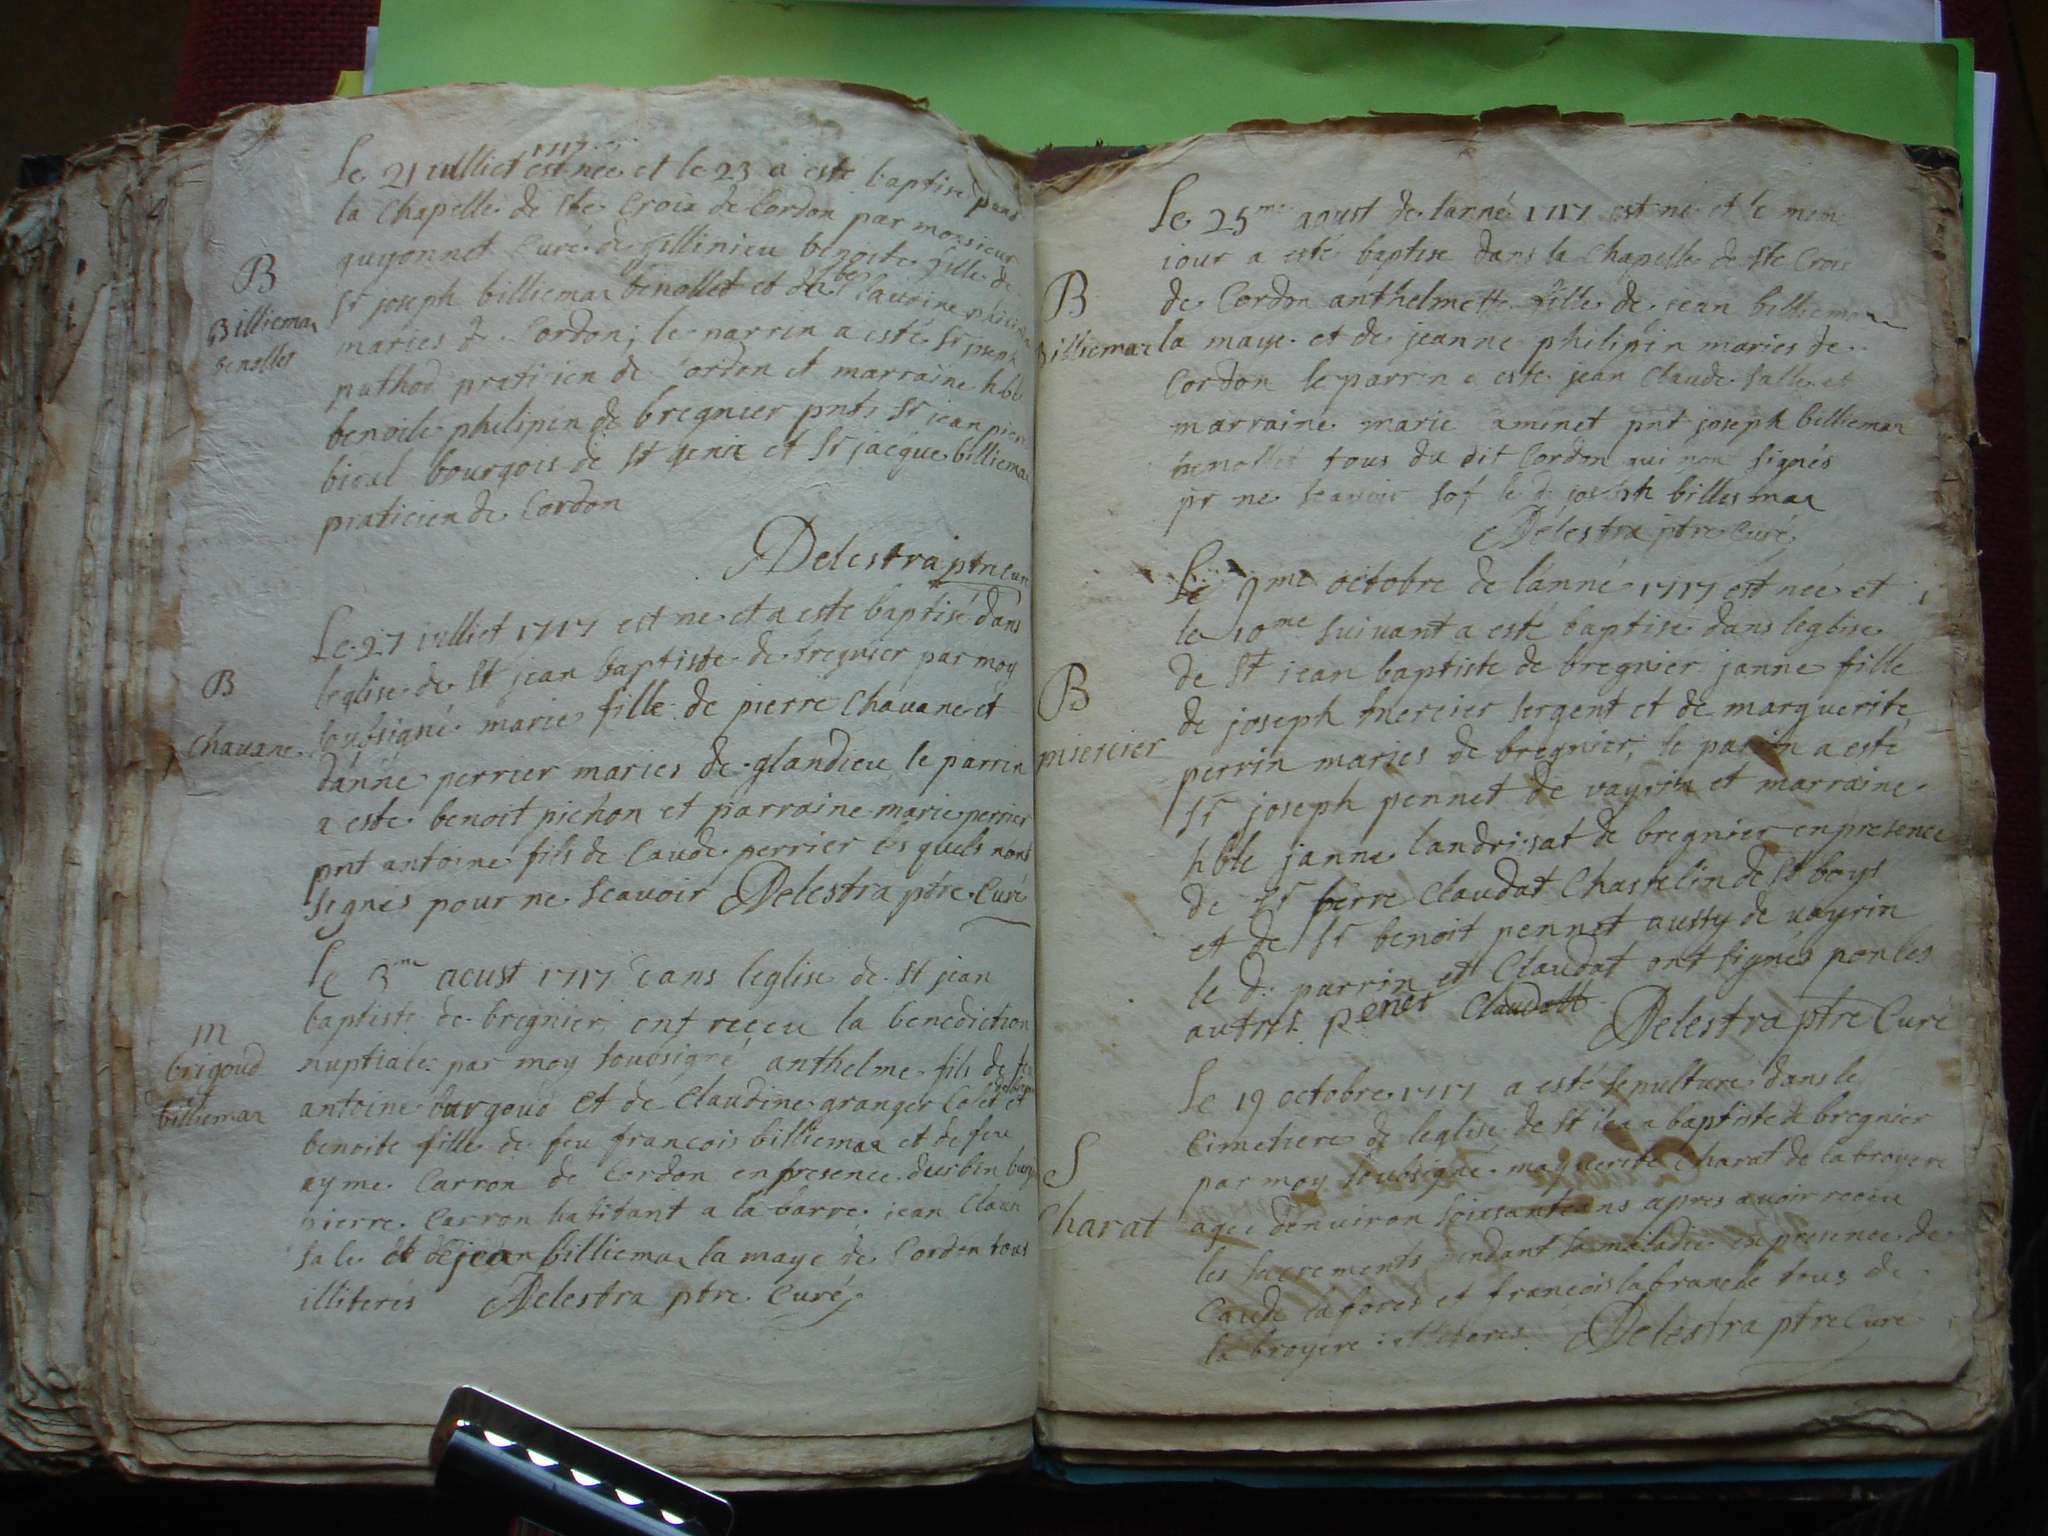 Le 21 iulliet 1717 est née et le 23 a esté baptise dans
la Chapelle de Ste Croix de Cordon par monsieur
guyonnet Curé de benoite fille de
Sr joseph billiemaz benollet et de Claudine
maries de Cordon; le parrin a esté Sr joseph
puthod praticien de Cordon et marraine hble
benoite philipin de bregnier pnts Sr jean pierre
bical bourgois de St genix et Sr jacque billiemaz
praticien de Cordon
Delestra ptre Cure
B
Billiemaz
benollet
Le 27 iulliet 1717 est ne et a este baptisé dans
leglise de St jean baptiste de bregnier par moy
soubsigné marie fille de pierre Chauane et
danne perrier maries de glandieu le parrin
a este benoit pichon et parraine marie perrier
pnt antoine fils de Caude perrier les quels nont
signés pour ne scauoir Delestra ptre Curé
B
Chauane
Le 3me aoust 1717 dans leglise de St jean
baptiste de bregnier ont receu la benediction
nuptiale par moy soubsigné anthelme fils de feu
antoine burgoud et de Claudine granger Colet et
benoite fille de feu francois billiemaz et de feu
ayme Carron de Cordon en presence durbin
pierre Carron habitant a la barre iean Claude
sale et de jean billiemaz la maye de Cordon tous
illiterés Delestra ptre Curé
m
brigoud
billiemaz
Le 25me aoust de lanné 1717 est né et le meme
iour a esté baptise dans la Chapelle de Ste Croix
de Cordon anthelmette fille de iean billiemaz
la maye et de jeanne philipin maries de
Cordon le parrin a este jean Claude salle et
marraine marie aminet pnt joseph billiemaz
benollet tous du dit Cordon qui non signés
pr ne scauoir sof le d. joseph billiemaz
Delestra ptre Curé
B
Billiemaz
Le 9me octobre de lanné 1717 est née et
le 10me suiuant a esté baptise dans leglise
de St iean baptiste de bregnier janne fille
de joseph mercier sergent et de marguerite
perrin maries de bregnier; le parrin a esté
Sr joseph pennet de vayrin et marraine
hble janne landrisat de bregnier en presence
de Sr pierre Claudat Chastelin de St boys
et de Sr benoit pennet austy de uayrin
le d. parrin et Claudat ont signés non les
autres penet Claudatt Delestra ptre Curé
B
miercier
Le 19 octobre 1717 a esté sepulture dans le
Cimetiere de leglise de St iean baptiste de bregnier
par moy soubsigné marguerite Charat de la broyere
agee denuiron soixante ans apres auoir receu
les sacrements pendant sa maladie en presence de
Caude lafores et francois la franche tous de
la broyere illiteres Delestra ptre Cure
S
Charat